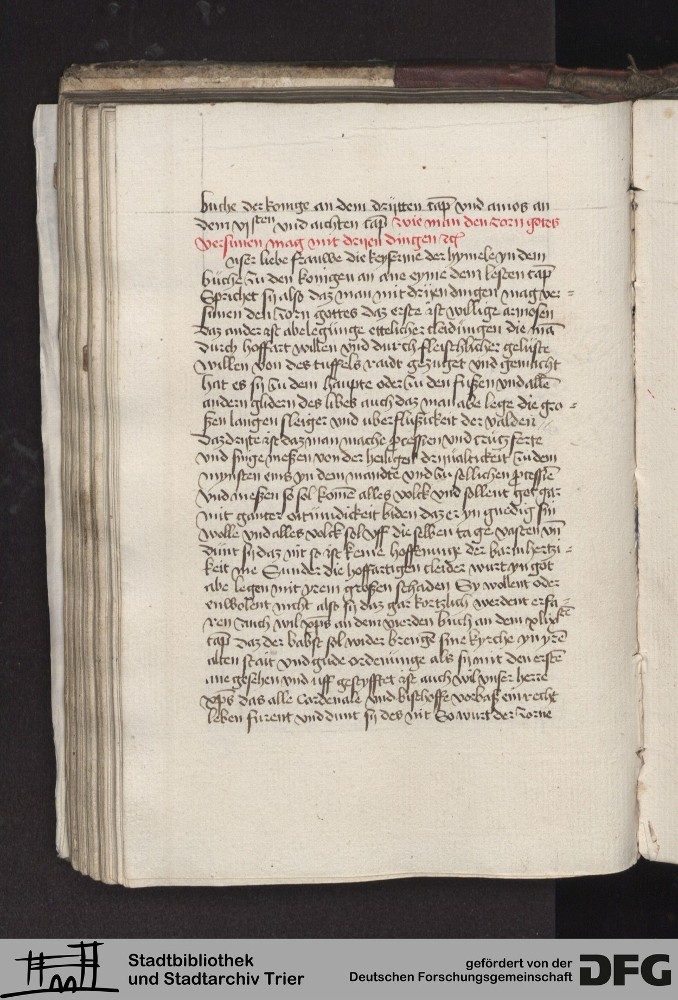 buche der konige an dem drijtten cap̄ vnd amos an
dem vjsten vnd achten cap̄ Wie man den zorn gotes
versunen mag mit drijen dingen ꝛc̄
Vnser liebe frauwe die keyserine der hymele yn dem
buche zu den konigen an eyme dem lesten cap̄
Sprichet sij also daz man mit drijen dingen mag ver=
sunen den zorn gottes daz erste ist willige armosen
Daz ander ist abelegunge ettelicher cleidingen die mā
durch hoffart willen vnd durch fleischlicher geluste
willen von des tuffels raidt gezuget vnd gemacht
hat es sij zu dem haupte oder zu den fußen vnd allē
andern glidern des libes auch daz man abe lege die gro=
ßen langen sleiger vnd vberflußickeit der valden
Daz dritte ist daz man mache processien vnd crutzferte
vnd singe messen von der heiligen drivaltickeit zu dem
mynsten eins yn dem mandte vnd zu sollichen processiē
vnd messen so sol komē alles volck vnd sollent got gar
mit gantzer otmudickeit biden daz er yn gnedig sin
wolle vnd alles volck sol vff die selben tage vasten vn̄
dunt sij daz nit so ist keine hoffenunge der barmhertzi=
keit me Sunder die hoffartigen cleider wurt yn got
abe legen mit yrem großen schaden Sy wollent oder
enwolent nicht also sij daz gar kortzlich werdent erfa=
ren Auch wil xp̄s an dem vierden buch an dem xlixsten
cap̄ daz der babst sol wider brengē sine kyrche yn yrē
alten stait vnd gude ordenunge als sij mit den erstē
ane gesehen vnd vff gestyfftet ist auch wil vnser herre
xp̄s das alle Cardenale vnd bischoffe vorbaß ein recht
leben furent vnd dunt sij des nit So wurt der zorne
Stadtbibliothek
und Stadtarchiv Trier
gefördert von der
Deutschen Forschungsgemeinschaft
DFG